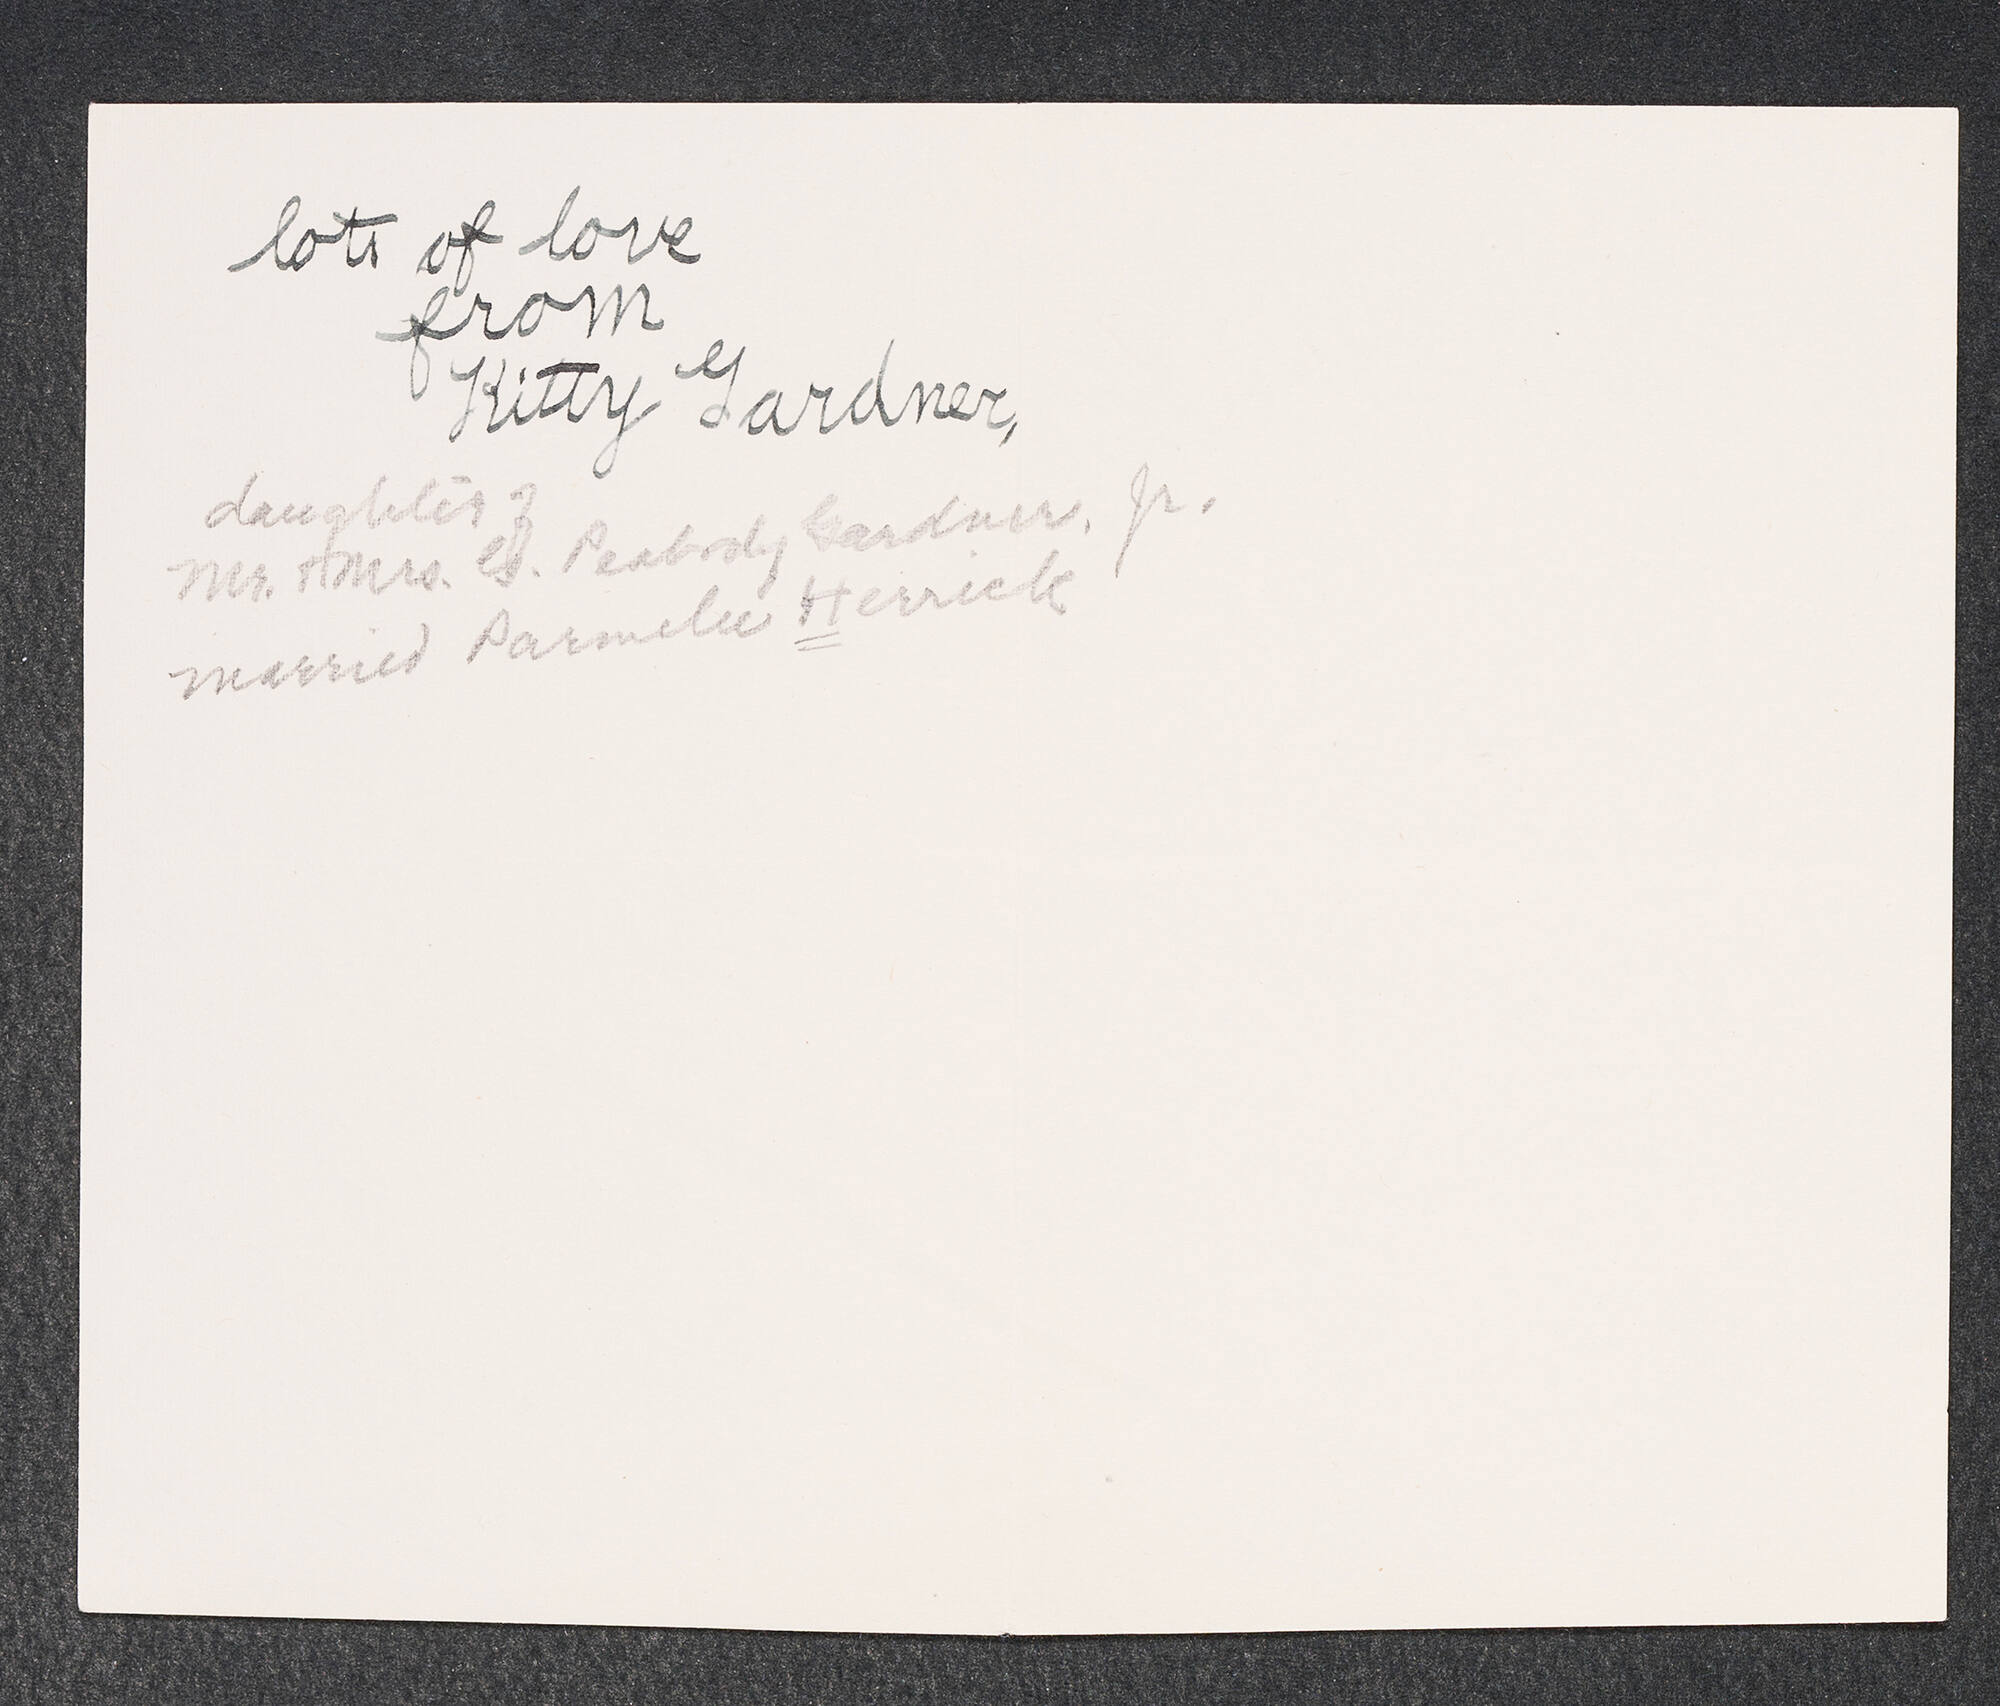 lots of love
from
Kitty Gardner,
daughter of
Mr. & Mrs. G. Peabody Gardner, Jr.
married Parmelee Herrick